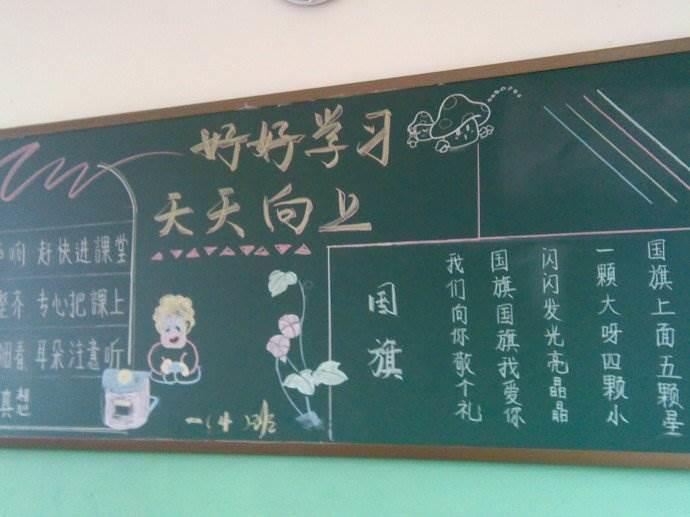 好好学习
天天向上
响 赶快进課堂
齐 专心把課上
细看 耳朵注意听
真想
一(4)班
国旗
国旗上面五颗星
一颗大呀四颗小
闪闪发光亮晶晶
国旗国旗我爱你
我们向你敬个礼